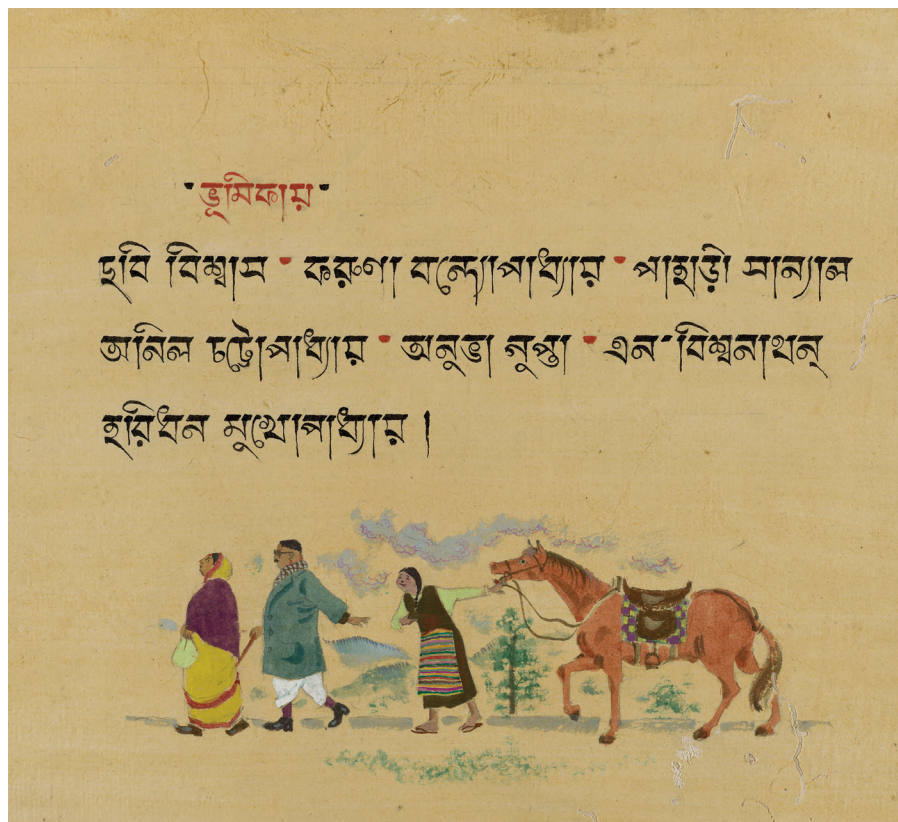 ভূমিকায়
ছবি বিশ্বাস • করুণা বন্দ্যোপাধ্যায় • পাহাড়ী সান্যাল
অনিল চট্টোপাধ্যায় • অনুভা গুপ্তা • এন·বিশ্বনাথন্
হরিধন মুখোপাধ্যায় ।